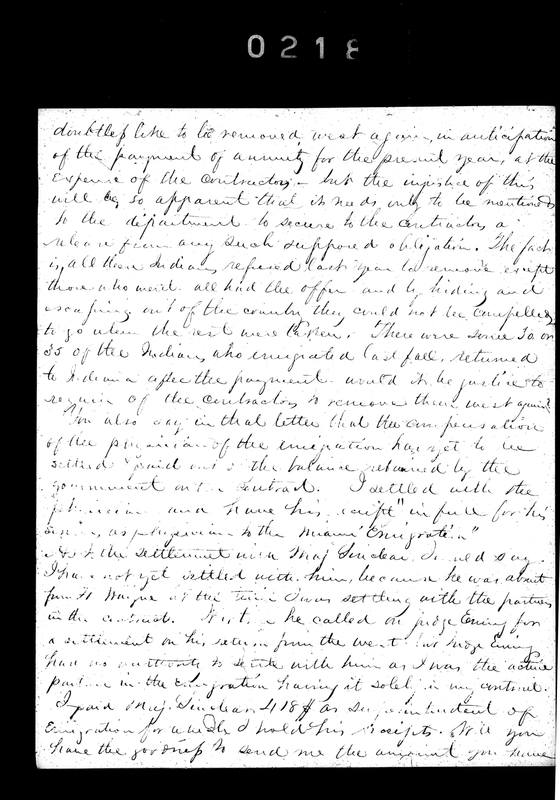 0218
doubtless like to be removed west again, in anticipation
of the payment of annuity for the present year, at the
expense of the contractors - but the injustice of this
will be so apparent that it needs only to be mentioned
to the department to secure to the contractors a
release from any such supposed obligation. The fact
is, all these Indians refused last year to remove except
those who went all had the offer and by hiding and
escaping out of the country they could not be compelled
to go when the rest were taken. There were some 30 or
35 of the Indians, who emigrated last fall, returned
to Indiana after the payment. would it be justice to
require of the contractors to remove them west again
You also say in that letter that the compensation
of the physician of the emigration has yet to be
settled & paid out of the balance retained by the
government on the contract. I settled with the
physician and have his receipt "in full for his
services as physician to the Miami Emigration"
As to the settlement with Maj Sinclear I would say
I have not yet settled with him, because he was absent
from Ft Wayne at the time I was settling with the partners
in the contract. he called on judge Ewing for
a settlement on his return from the west but Judge Ewing
had no authority to settle with him as I was the active
partner in the emigration having it solely in my control.
I paid Maj. Sinclear 418$ as superintendent of
Emigration for which I hold his receipts. Will you
have the goodness to send me the amount you have